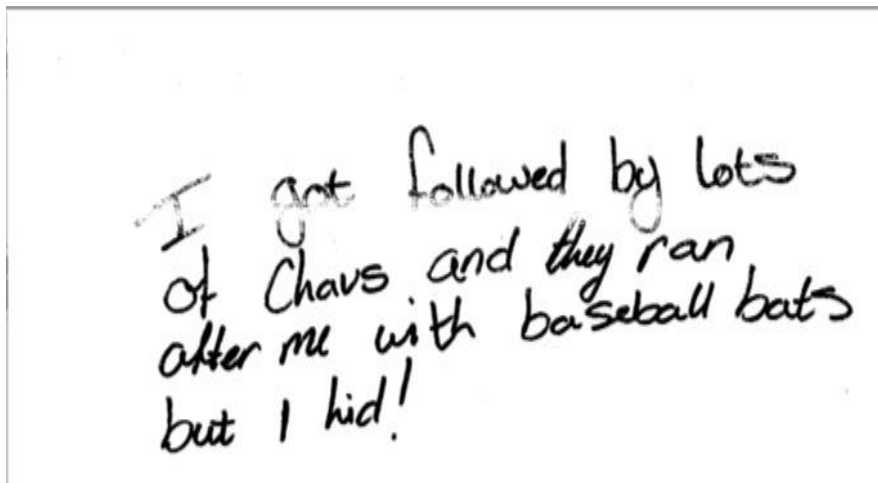 I got followed by lots
of Chavs and they ran
after me with baseball bats
but I hid!